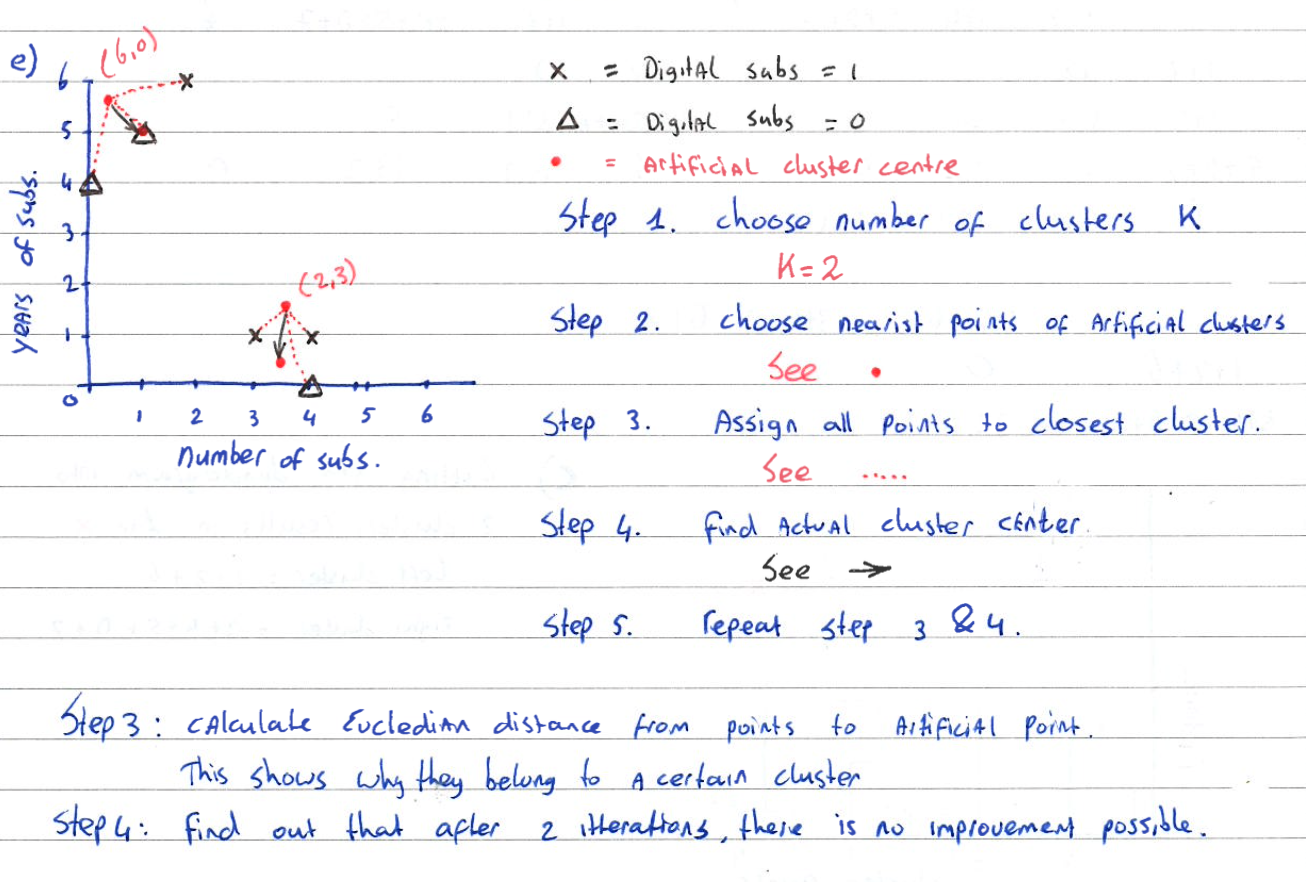 e) (6,0)
6
5
4
3
2
1
0
years of subs.
(2,3)
1 2 3 4 5 6
number of subs.
x = Digital subs = 1
Δ = Digital subs = 0
• = Artificial cluster centre
Step 1. choose number of clusters K
K=2
Step 2. choose nearist points of Artificial clusters
See •
Step 3. Assign all points to closest cluster.
See .....
Step 4. find Actual cluster center.
See →
Step 5. repeat step 3 & 4.
Step 3: calculate Eucledian distance from points to Artificial Point.
This shows why they belong to a certain cluster
Step 4: find out that after 2 itterations, there is no improvement possible.